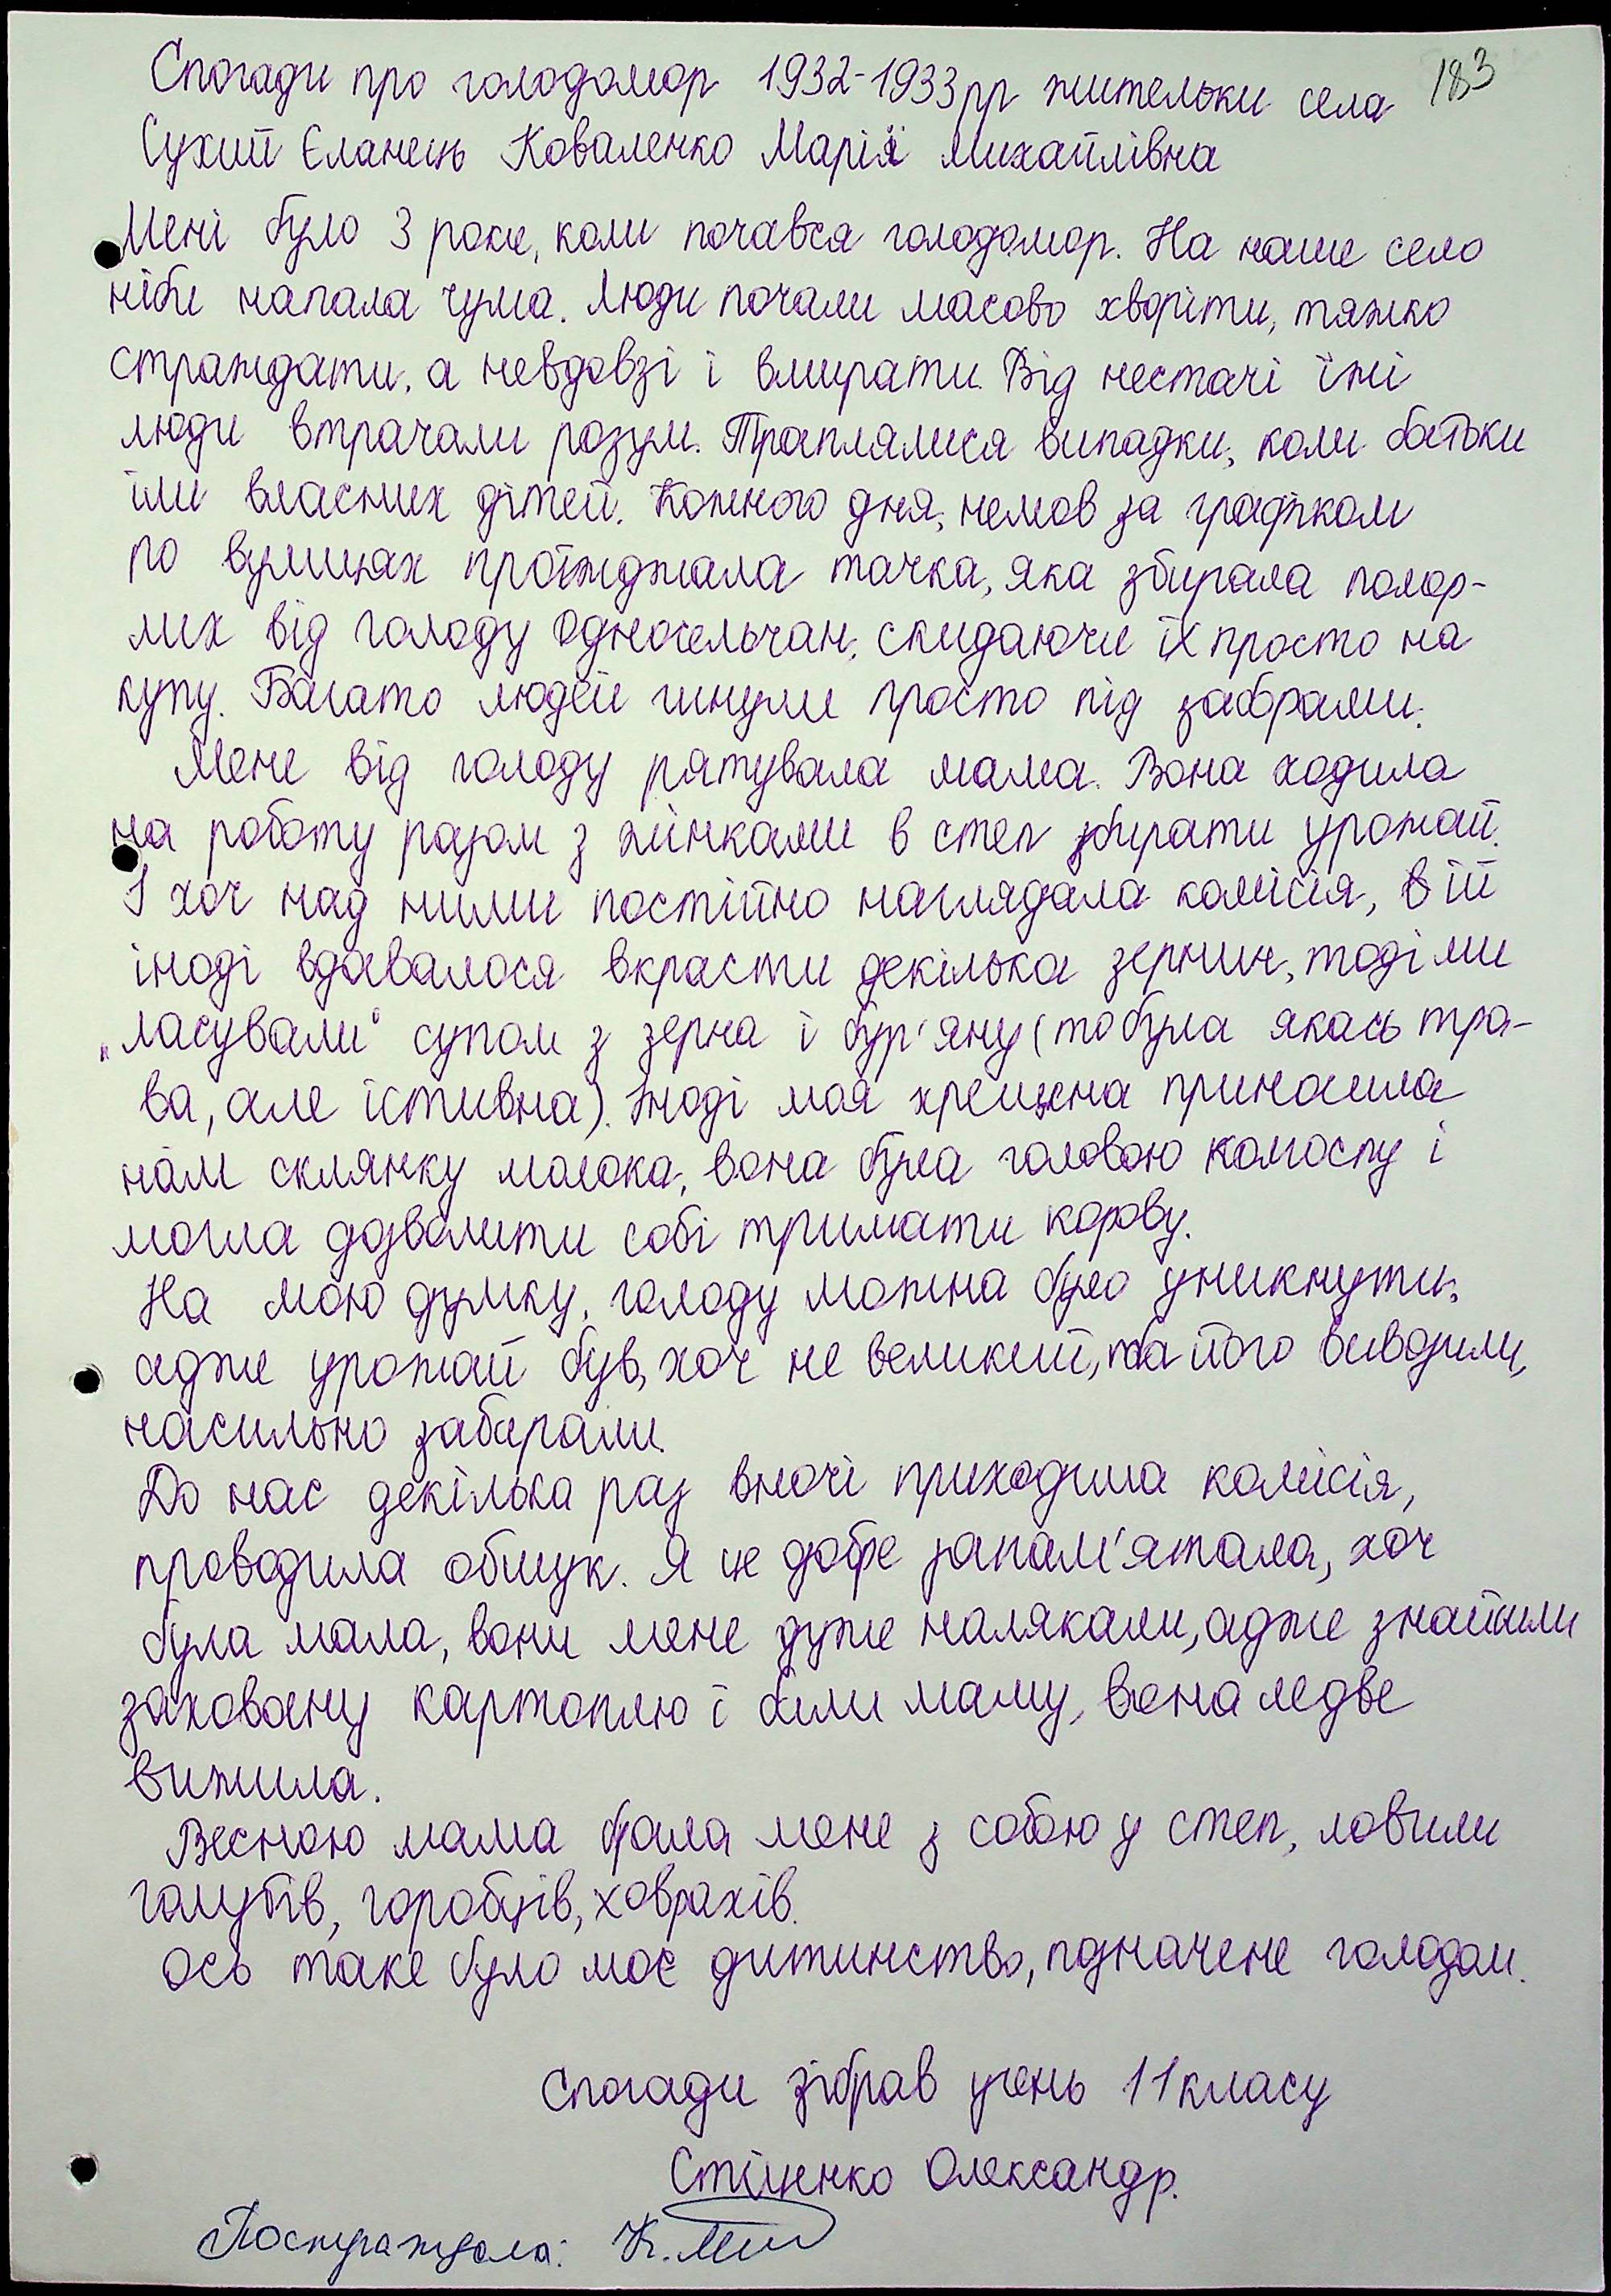 183
Спогади про голодомор 1932-1933рр жительки села
Сухий Єланець Коваленко Марія Михайлівна
Мені було 3 роки, коли почався голодомор. На наше село
ніби напала чума. Люди почали масово хворіти, тяжко
страждати, а невдовзі і вмирати. Від нестачі їжі
люди втрачали розум. Траплялися випадки, коли батьки
їли власних дітей. Кожного дня, немов за графіком
по вулицях проїжджала тачка, яка збирала помер-
лих від голоду односельчан, скидаючи їх просто на
купу. Багато людей гинули просто під забрами.
Мене від голоду рятувала мама. Вона ходила
на роботу разом з жінками в степ збирати урожай.
І хоч над ними постійно наглядала комісія, їй
іноді вдавалося вкрасти декілька зернин, тоді ми
„ласували“ супом з зерна і бур'яну (то була якась тра-
ва, але їстивна). Іноді моя хрещена приносила
нам склянку молока, вона була головою колгоспу і
могла дозволити собі тримати корову.
На мою думку, голоду можна було уникнути,
адже урожай був, хоч не великий, та його вивозили,
насильно забирали.
До нас декілька раз вночі приходила комісія,
проводила обшук. Я це добре запам'ятала, хоч
була мала, вони мене дуже налякали, адже знайшли
заховану картоплю і били маму, вона ледве
вижила.
Весною мама брала мене з собою у степ, ловили
голубів, горобців, ховрахів.
Ось таке було моє дитинство, позначене голодом.
Спогади зібрав учень 11 класу
Стіценко Олександр.
Постраждала: